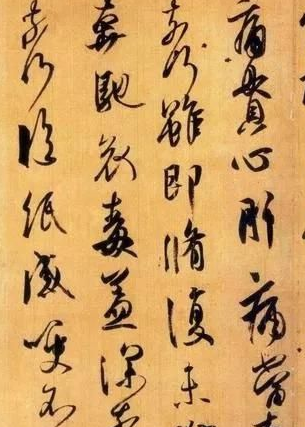 痛貫心肝痛當奈
奈何雖即脩復未獲
奔馳哀毒益深奈
奈何臨紙感哽不